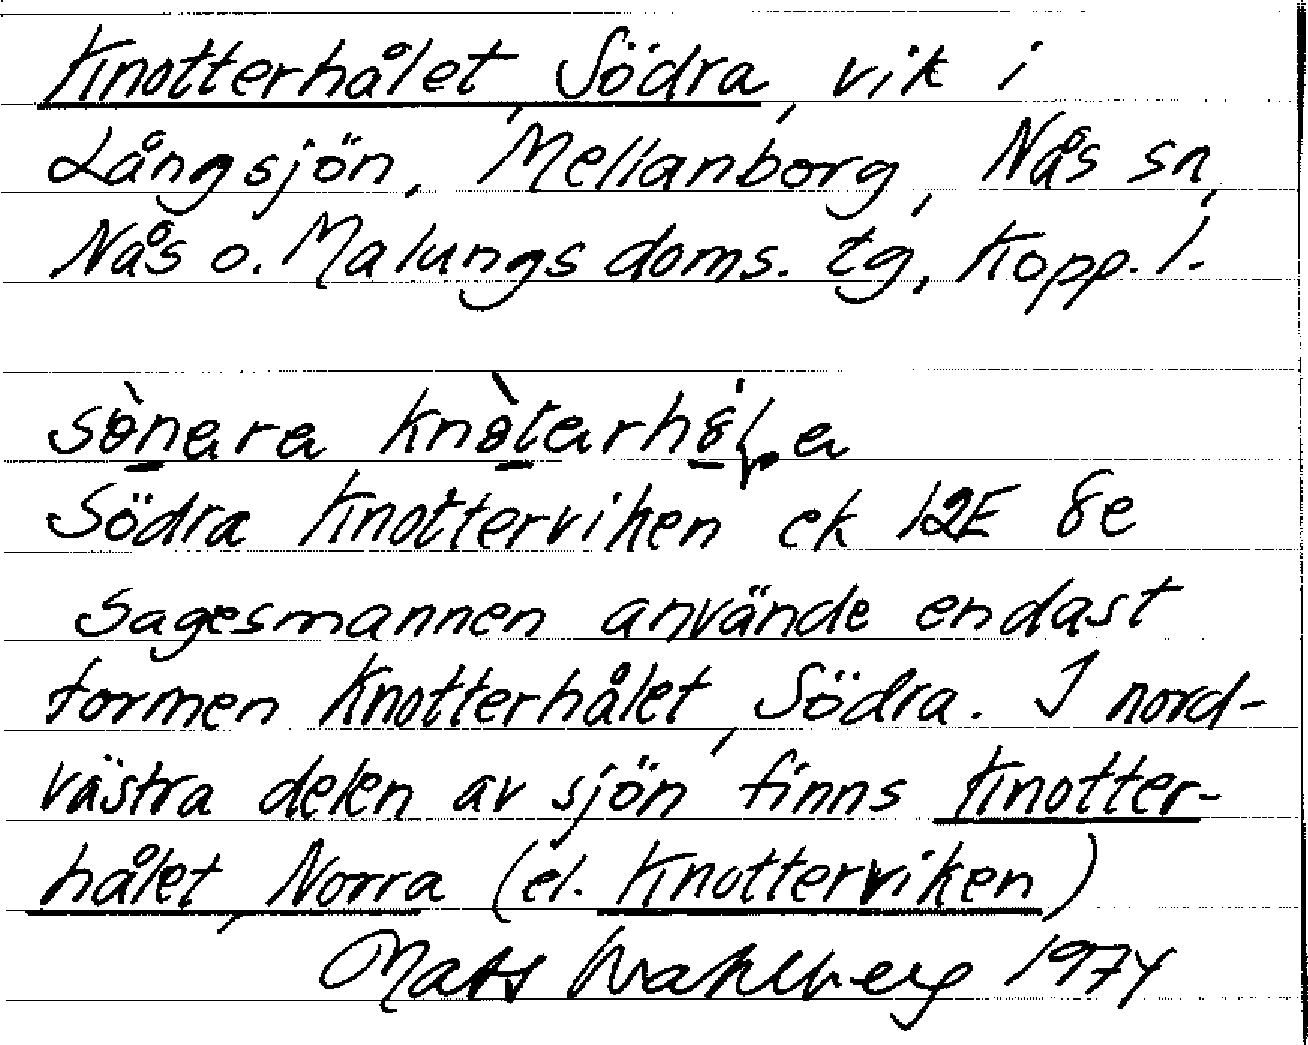 Knotterhålet, Södra, vik i
Långsjön, Mellanborg, Nås sn,
Nås o. Malungs doms. tg, Kopp. l.
Södra Knotterviken ek 12E 8e
Sagesmannen använde endast
formen Knotterhålet, Södra. I nord-
västra delen av sjön finns Knotter-
hålet, Norra (el. Knotterviken)
Mats Wahlberg 1974